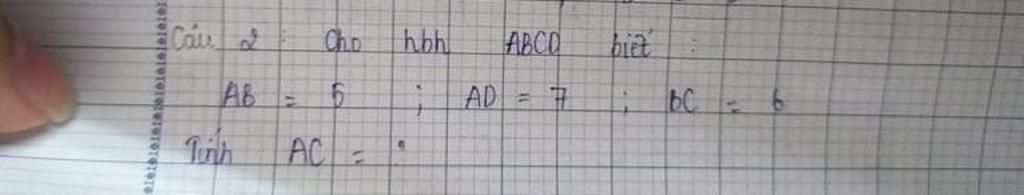 Câu 2 : Cho hbh ABCD biết :
AB = 5 ; AD = 7 ; bC = 6
Tính AC = ?